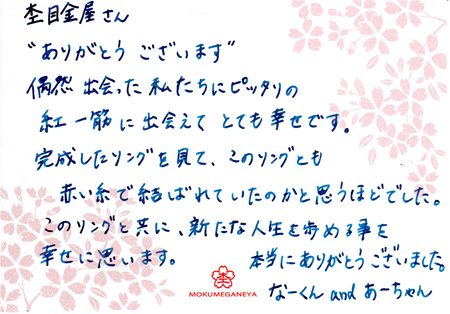 杢目金屋さん
"ありがとう ございます"
偶然 出会った 私たちにピッタリの
紅一筋に出会えて とても幸せです。
完成したリングを見て、このリングとも
赤い糸で結ばれていたのかと思うほどでした。
このリングと共に、新たな人生を歩める事を
幸せに思います。
本当にありがとうございました。
なーくん and あーちゃん
MOKUMEGANEYA